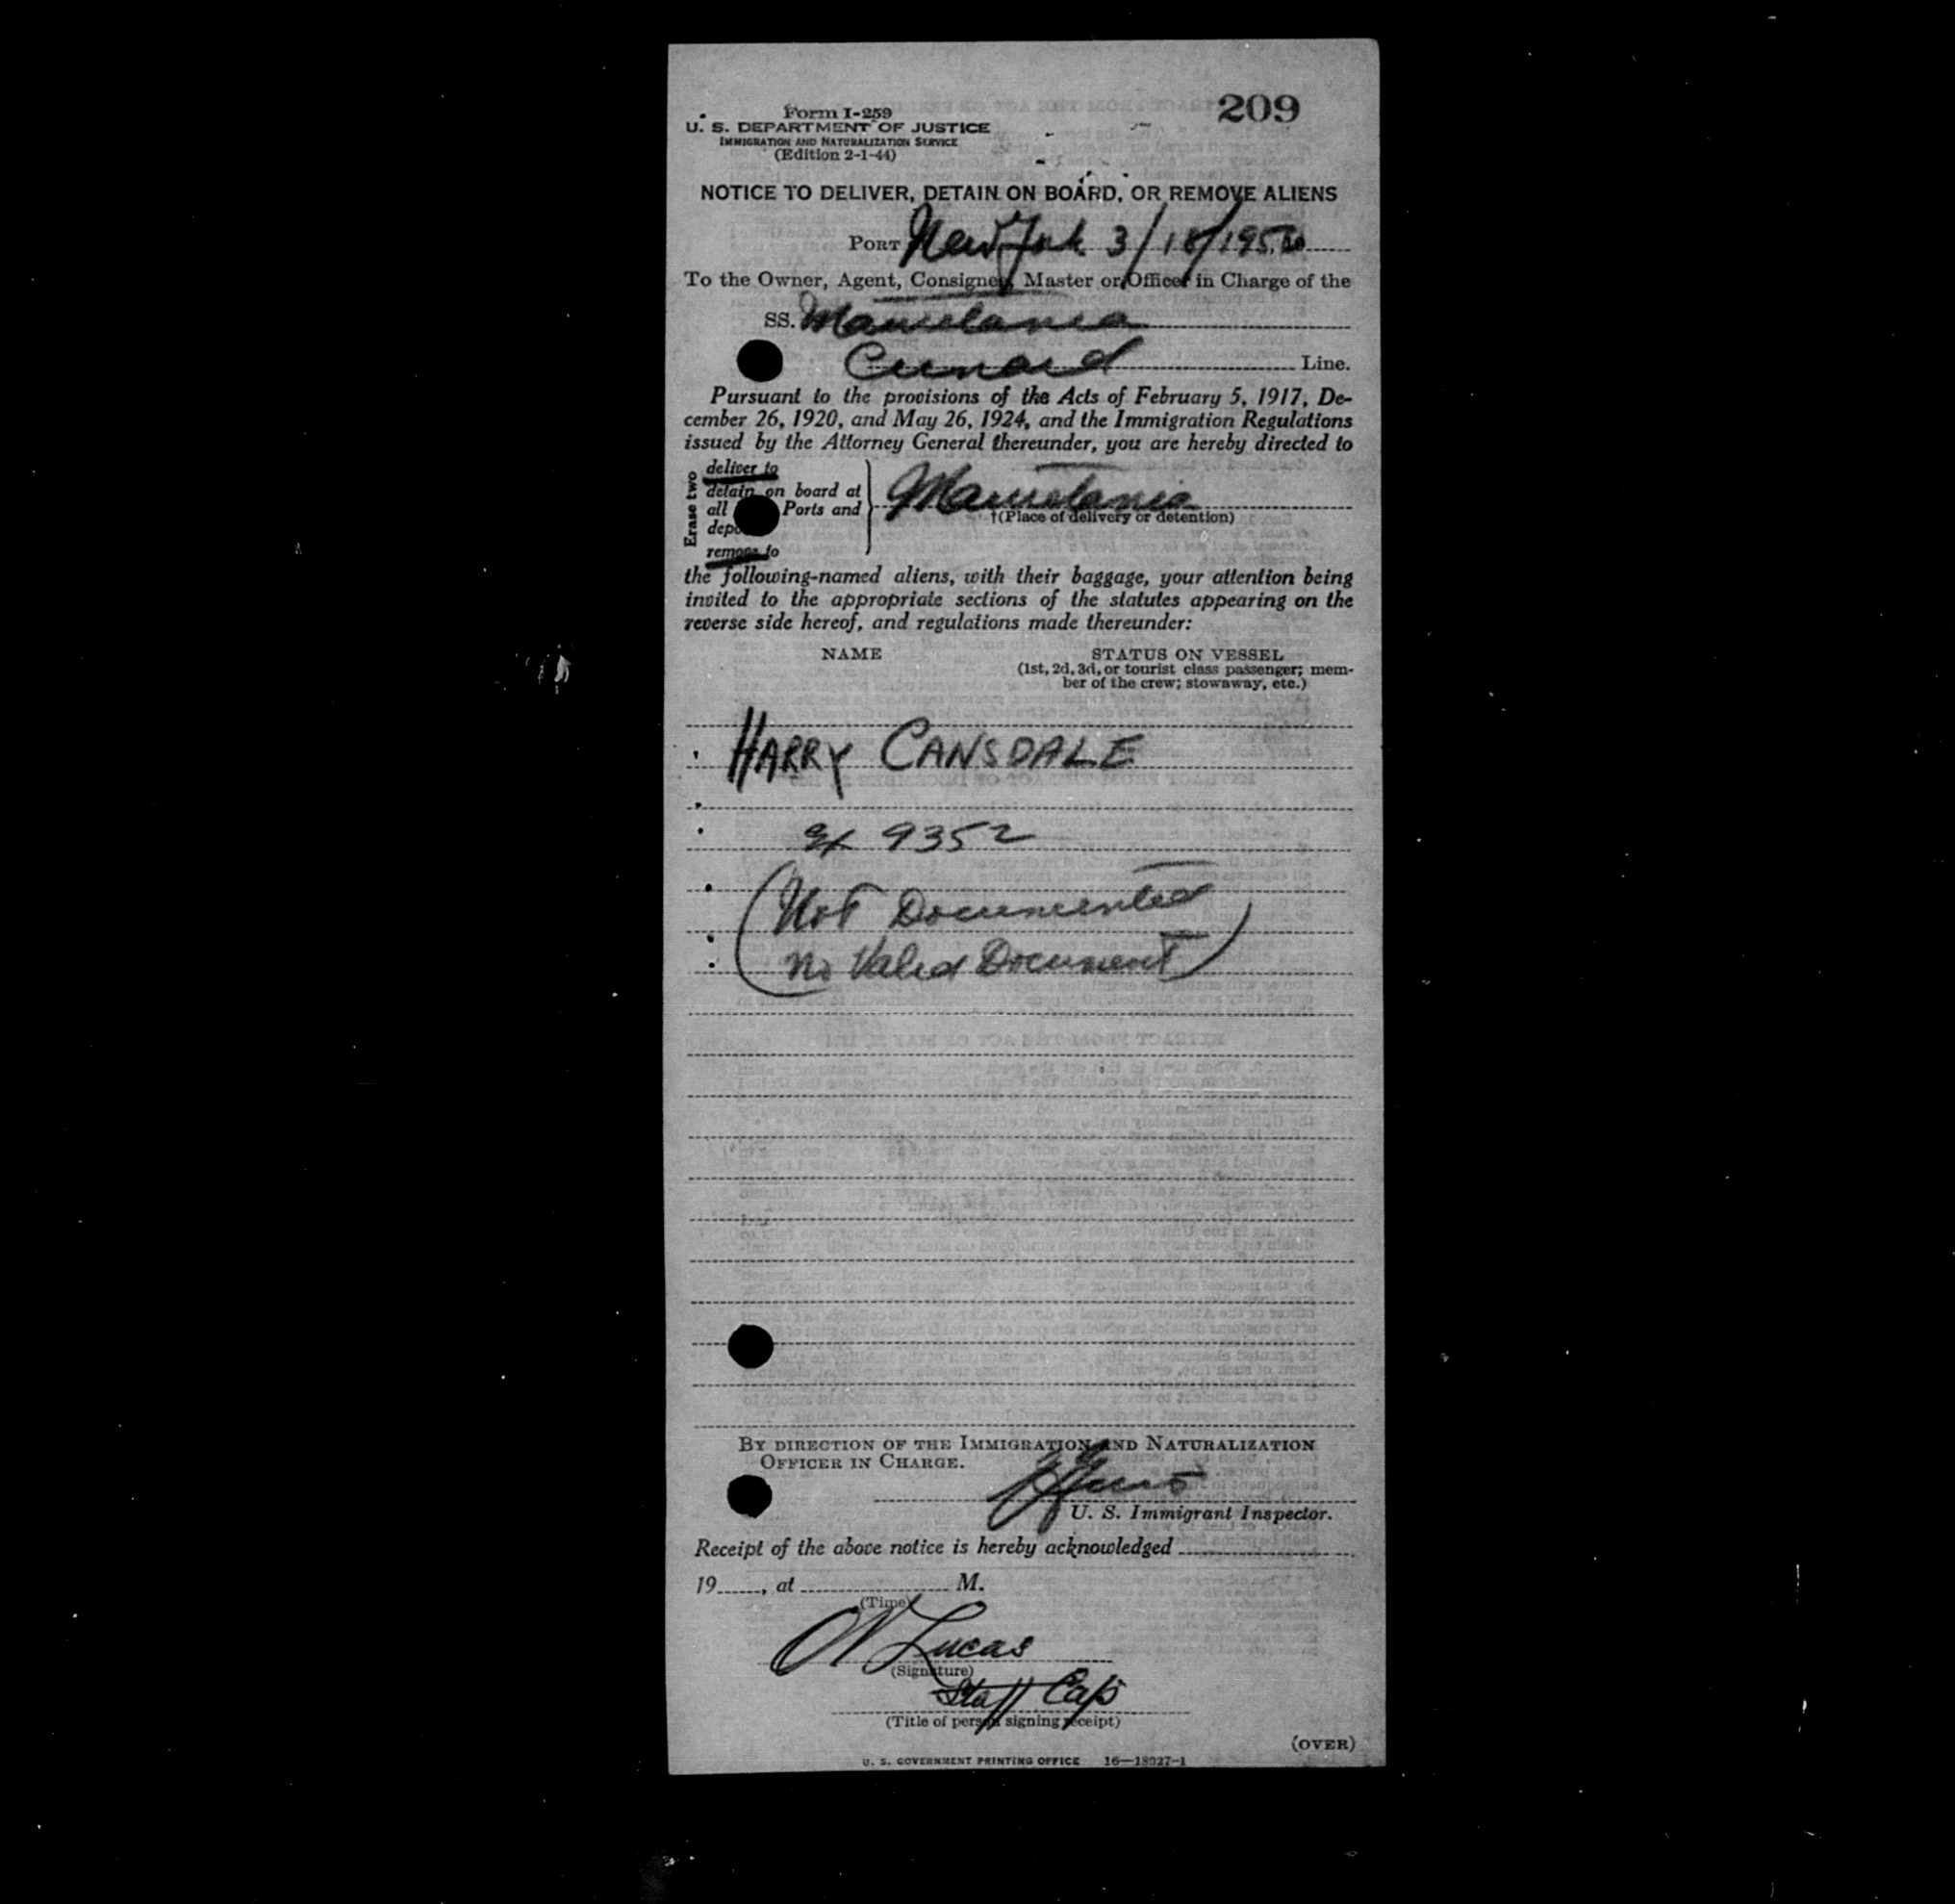 209
Form I-259
U. S. DEPARTMENT OF JUSTICE
IMMIGRATION AND NATURALIZATION SERVICE
(Edition 2-1-44)
NOTICE TO DELIVER, DETAIN ON BOARD, OR REMOVE ALIENS
PORT New York 3/18/195
To the Owner, Agent, Consignee, Master or Officer in Charge of the
SS. Mauretania
Cunard Line.
Pursuant to the provisions of the Acts of February 5, 1917, De-
cember 26, 1920, and May 26, 1924, and the Immigration Regulations
issued by the Attorney General thereunder, you are hereby directed to
Erase two
deliver to
detain on board at
all Ports and
remove to
Mauretania
†(Place of delivery or detention)
the following-named aliens, with their baggage, your attention being
invited to the appropriate sections of the statutes appearing on the
reverse side hereof, and regulations made thereunder:
NAME STATUS ON VESSEL
(1st, 2d, 3d, or tourist class passenger; mem-
ber of the crew; stowaway, etc.)
HARRY CANSDALE
9352
(Not Documented
No Valid Document)
BY DIRECTION OF THE IMMIGRATION AND NATURALIZATION
OFFICER IN CHARGE.
U. S. Immigrant Inspector.
Receipt of the above notice is hereby acknowledged
19, at M.
(Time)
Lucas
(Signature)
Staff Capt
(Title of person signing receipt)
(OVER)
U. S. GOVERNMENT PRINTING OFFICE 16—18027-1